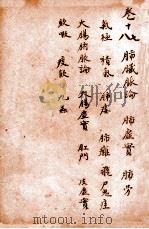 卷十七八 肺臟脈論 肺虛實 肺勞
氣極 積氣 肺痿 肺癰 飛尸鬼疰
大腸腑脈論 大腸虛實 肛門 皮虛實
欬嗽 痰飲 九蟲